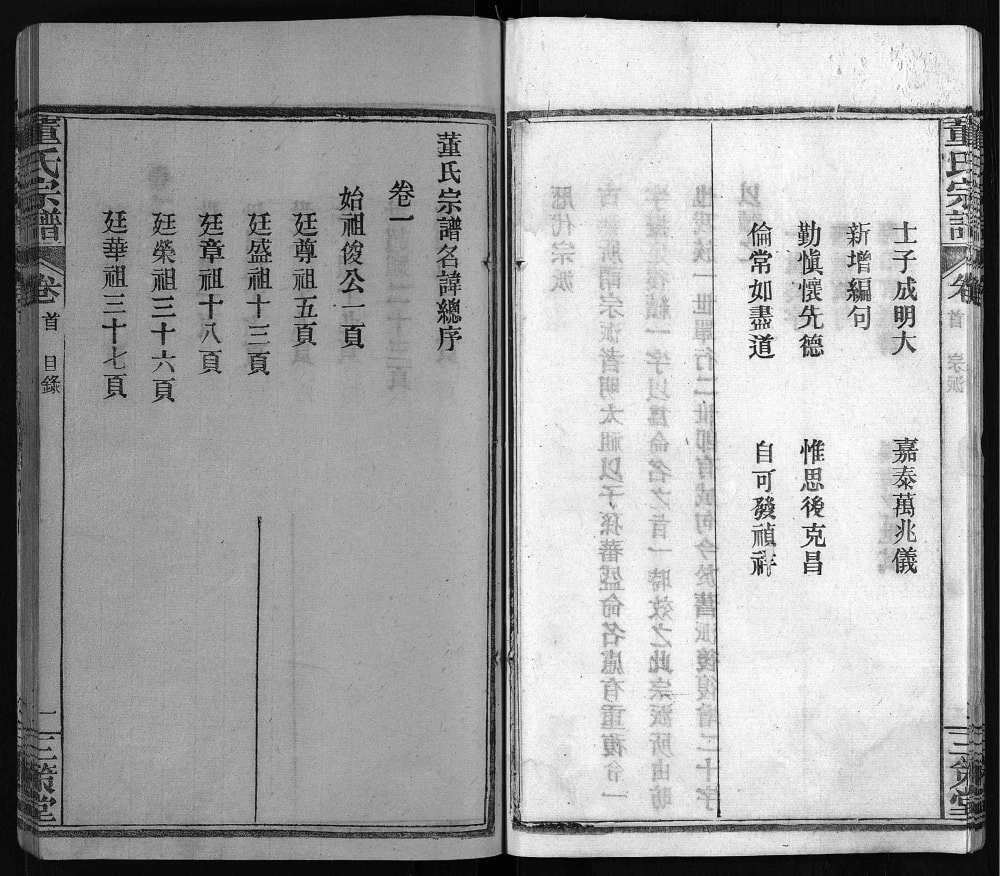 士子成明大　嘉泰萬兆儀
新增編句
勤愼懷先德　惟思後克昌
倫常如盡道　自可發禎祥
董氏宗譜　卷首　宗派　三策堂
董氏宗譜名諱總序
卷一
始祖俊公一頁
廷尊祖五頁
廷盛祖十三頁
廷章祖十八頁
廷榮祖三十六頁
廷華祖三十七頁
董氏宗譜　卷首　目錄　一　三策堂